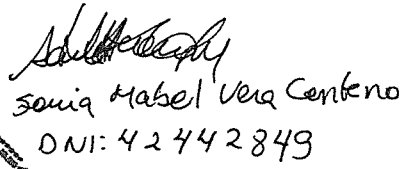 Sonia Mabel Vera Centeno
DNI: 42442849